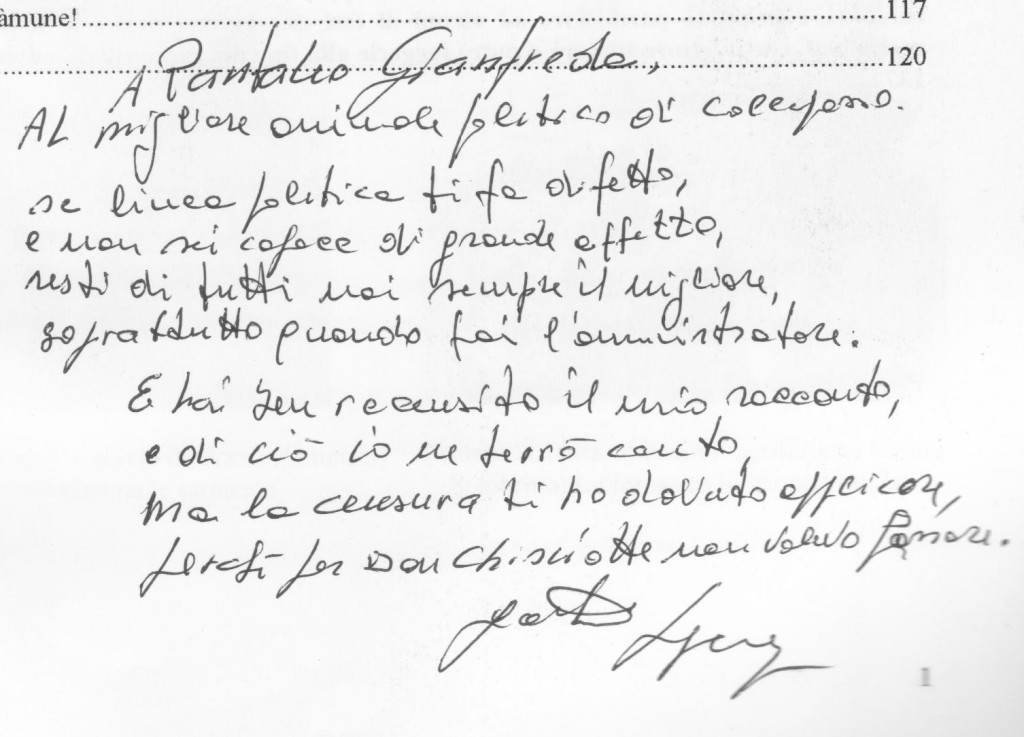 àmune!..........117
..........120
A Pantaleo Gianfreda,
AL migliore animale politico di Collepasso.
se linea politica ti fa difetto,
e non sei capace di grande affetto,
resti di tutti noi sempre il migliore,
soprattutto quando fai l'amministratore.
E hai ben recensito il mio racconto,
e di ciò io ne terrò conto,
ma la censura ti ho dovuto applicare,
perché per Don Chisciotte non volevo passare.
1